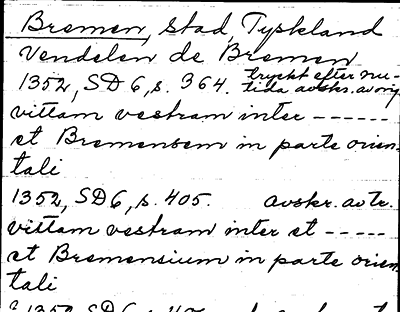 Bremen, stad, Tyskland
Vendelen de Bremen
1352, SD 6, s. 364. tryckt efter nu-
tida avskr. av orig
vittam vestram inter ------
et Bremensem in parte orien-
tali
1352, SD 6, s. 405. avskr. av tr.
vittam vestram inter et -----
et Bremensium in parte orien-
tali